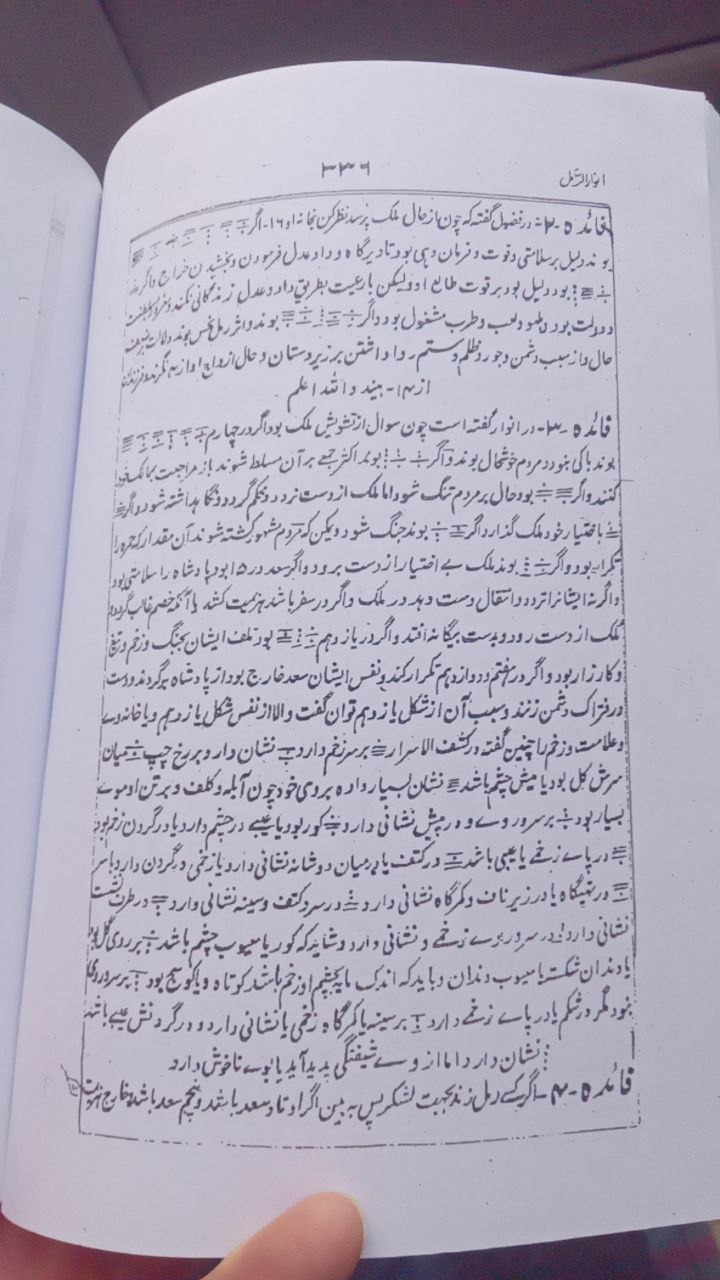 انوار الرمل
۲۳۶
فائده -۲- در فصول گفته که چون از حال ملک پرسد نظر کن بخانه او ۱۶- اگر
بوند دلیل بر سلامتی و قوت و فرمان دهی بود تا دیرگاه و داد عدل فرمودن و بخشیدن خراج و اگر
بود دلیل بود بر قوت طالع او ولیکن با رعیت بطریق داد و عدل زندگانی نکند و مغرور بسلطنت
و دولت بود و بلهو و لعب و طرب مشغول بود و اگر بوند و اثر رمل نحس بوند دلالت بضعف
حال و از سبب دشمن و جور و ظلم و ستم روا داشتن بر زیردستان و حال ازواج او از نگرند و فرزندان
از ۱۳- بیند و الله اعلم
فائده -۳- در انوار گفته است چون سوال از تشویش ملک بود اگر در چهارم
بوند باکی نبود و مردم خوشحال بوند و اگر بوند اکثر جمعی بر آن مسلط شوند باز مراجعت بممالک خود
کنند و اگر بود حال بر مردم تنگ شود اما ملک از دست نرود و محکم گردد و نگاهداشته شود و اگر
باختیار خود ملک گذارد اگر بوند جنگ شود ویکن که مردم شهر کشته شوند آن مقدار که جمره را
تکرار بود و اگر بوند ملک بے اختیار از دست برود و اگر سعد در ۱۵ بود پادشاه را سلامتی بود
و اگر نه ایشانرا تردد و انتقال دست دهد در ملک و اگر در سفر باشد هزیمت کشد یا آنکه خصم غالب گردد و
ملک از دست رود و بدست بیگانه افتد و اگر در یازدهم بود تلف ایشان بجنگ و زخم و تیغ
و کارزار بود و اگر در هفتم و دوازدهم تکرار کند و نفس ایشان سعد خارج بود از پادشاه برگردند و دست
در فتراک دشمن زنند و سبب آن از شکل یازدهم توان گفت و الا از نفس شکل یازدهم و یا خانه وے
و علامت و زخم را چنین گفته در کشف الاسرار بر سر زخم دارد نشان دارد بر رخ چپ میان
سرش کل بود یا میش چشم باشد نشان بسیار داده بروی خود چون آبله و کلف و بر تن او موے
بسیار بود بر سر و روے و در پیش نشانی دارد کور بود یا عیبے در چشم دارد یا در گردن زخم بود
در پاے زخمے یا عیبی باشد در کتف یا در میان دو شانه نشانی دارد یا زخمی در گردن دارد یا سر
در تهیگاه یا در زیر ناف و کمرگاه نشانی دارد در سر و کتف و سینه نشانی دارد در طرف پشت
نشانی دارد در سر و روے زخمے و نشانی دارد و شاید که کور یا معیوب چشم باشد بر روی گل بود
یا دندان شکسته یا معیوب دندان و باید که اندک مایه بچشم او زخم باشد کوتاه و یا کوسج بود بر سر و روی
نبود مگر در شکم یا در پاے زخمے دارد بر سینه یا کمرگاه زخمی یا نشانی دارد و در گردنش عیبے باشد
نشان دارد اما از وے شیفتگی پدید آید یا بوے ناخوش دارد
فائده -۴- اگر کسے رمل زند بجهت لشکر پس به بین اگر اوتاد سعد باشد و پنجم سعد باشد و خارج